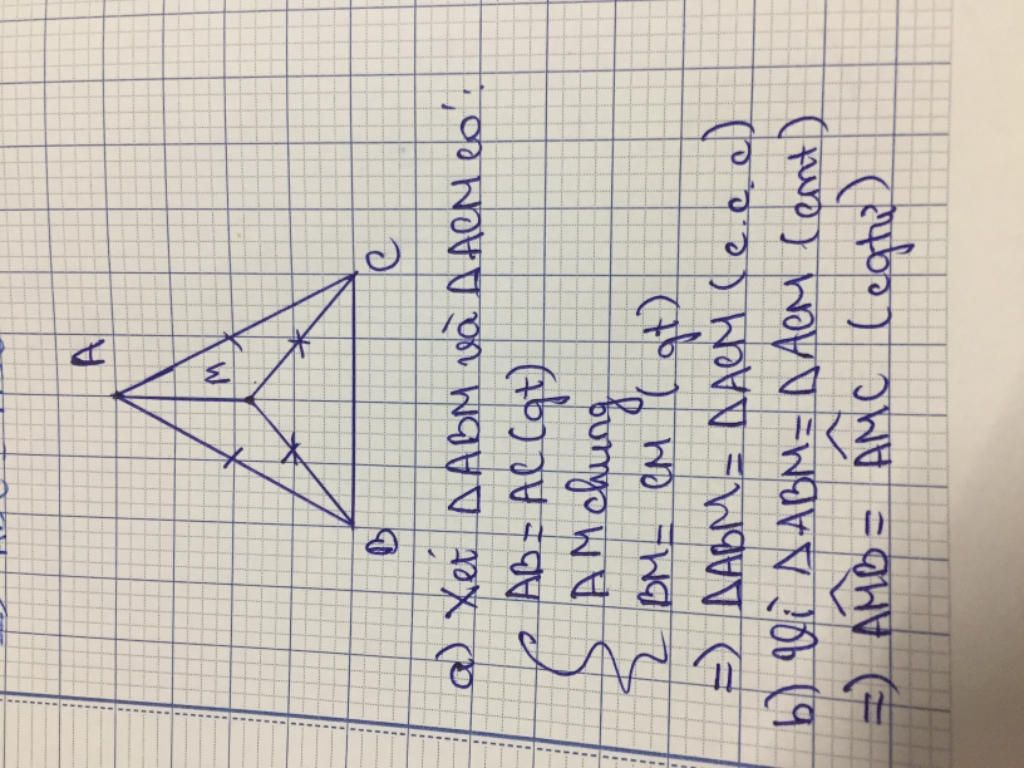 A
M
B
C
a) Xét ΔABM và ΔACM có:
AB = AC (gt)
AM chung
BM = CM (gt)
=) ΔABM = ΔACM (c.c.c)
b) Vì ΔABM = ΔACM (cmt)
=) AM̂B = AM̂C (cgtứ)